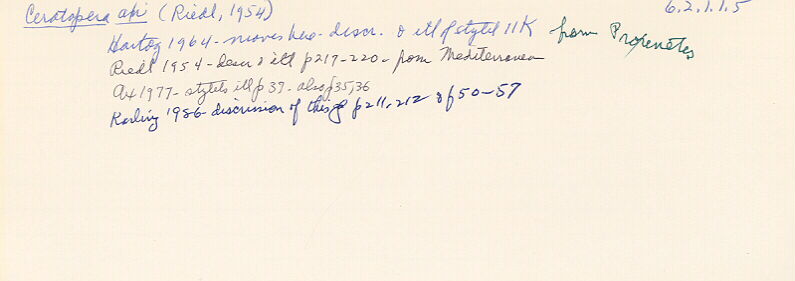 Ceratopera axi (Riedl, 1954) 6.2.1.1.5
Hartog 1964 - moves here - discr. & ill of stylet 11K from Proxenetes
Riedl 1954 - descr & ill p217-220 - from Mediterranean
Ax 1977 - stylets ill p 37 - also p35,36
Karling 1986 - discussion of this p 211, 212 & f 50-57